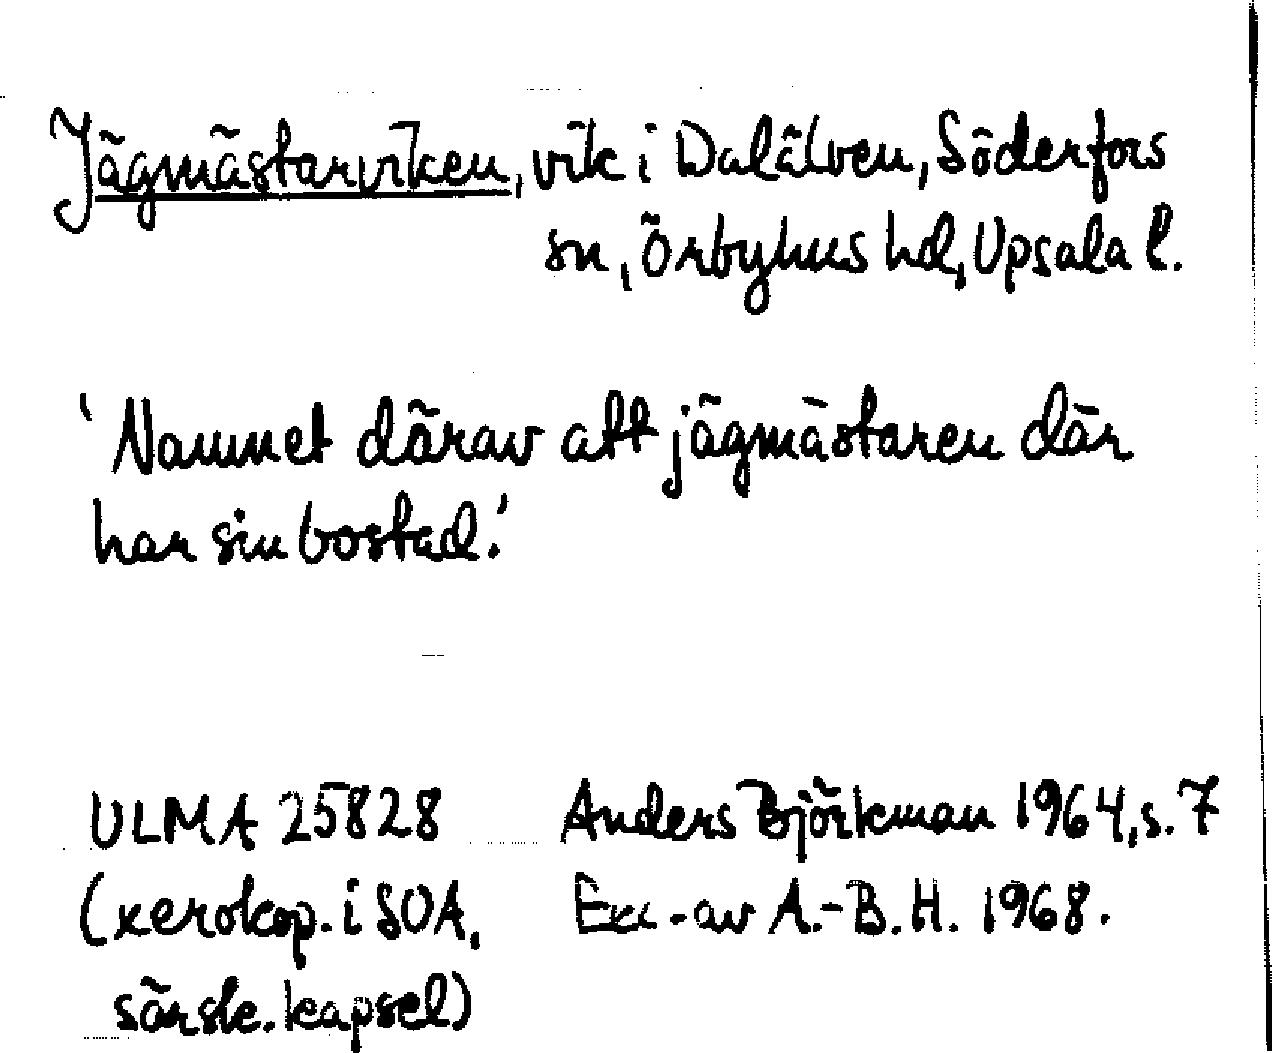 Jägmästarviken, vik i Dalälven, Söderfors
sn, Örbyhus hd, Upsala l.
'Namnet därav att jägmästaren där
har sin bostad.'
ULMA 25828 Anders Björkman 1964, s. 7
(xerokop. i SOA, Exc. av A.-B. H. 1968.
särsk. kapsel)